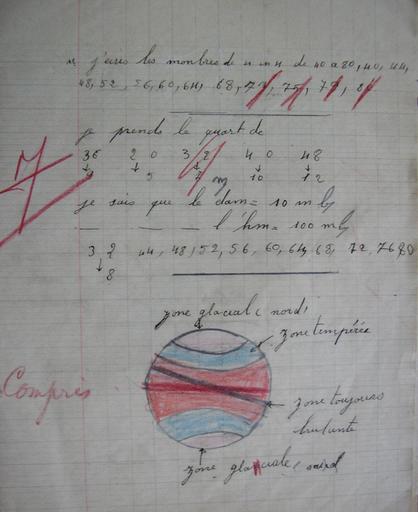 j'écris les monbres de 4 en 4 de 40 a 80, 40, 44,
48, 52, 56, 60, 64, 68, 71, 75, 79, 8
je prends le quart de
36 20 32 40 48
5 10 12
7
je sais que le dam = 10 m
l'hm = 100 m
32 44, 48, 52, 56, 60, 64, 68, 72, 76 80
8
zone glaciale (nord)
zone tempérée
Compris
zone toujours
brulante
zone glaciale (